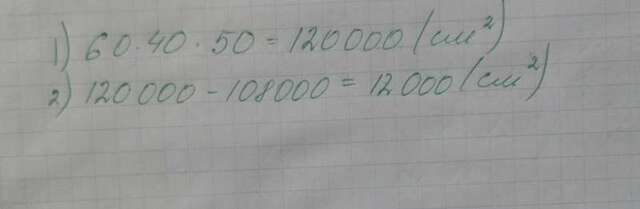 1) 60·40·50=120000 (см²)
2) 120000-108000=12000 (см²)